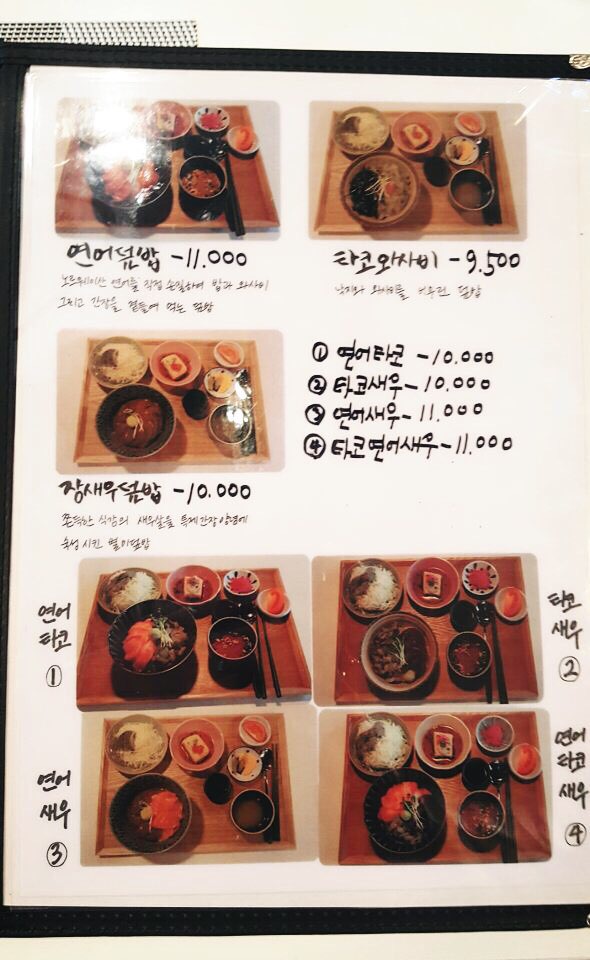 연어덮밥 -11.000
노르웨이산 연어를 직접 손질하여 밥과 와사비
그리고 간장을 곁들여 먹는 덮밥
타코와사비 -9.500
낙지와 와사비를 버무린 덮밥
장새우덮밥 -10.000
쫀득한 식감의 새우살을 특제간장양념에
숙성시킨 별미덮밥
① 연어타코 -10.000
② 타코새우 -10.000
③ 연어새우 - 11.000
④ 타코연어새우 -11.000
연어
타코
①
타코
새우
②
연어
새우
③
연어
타코
새우
④